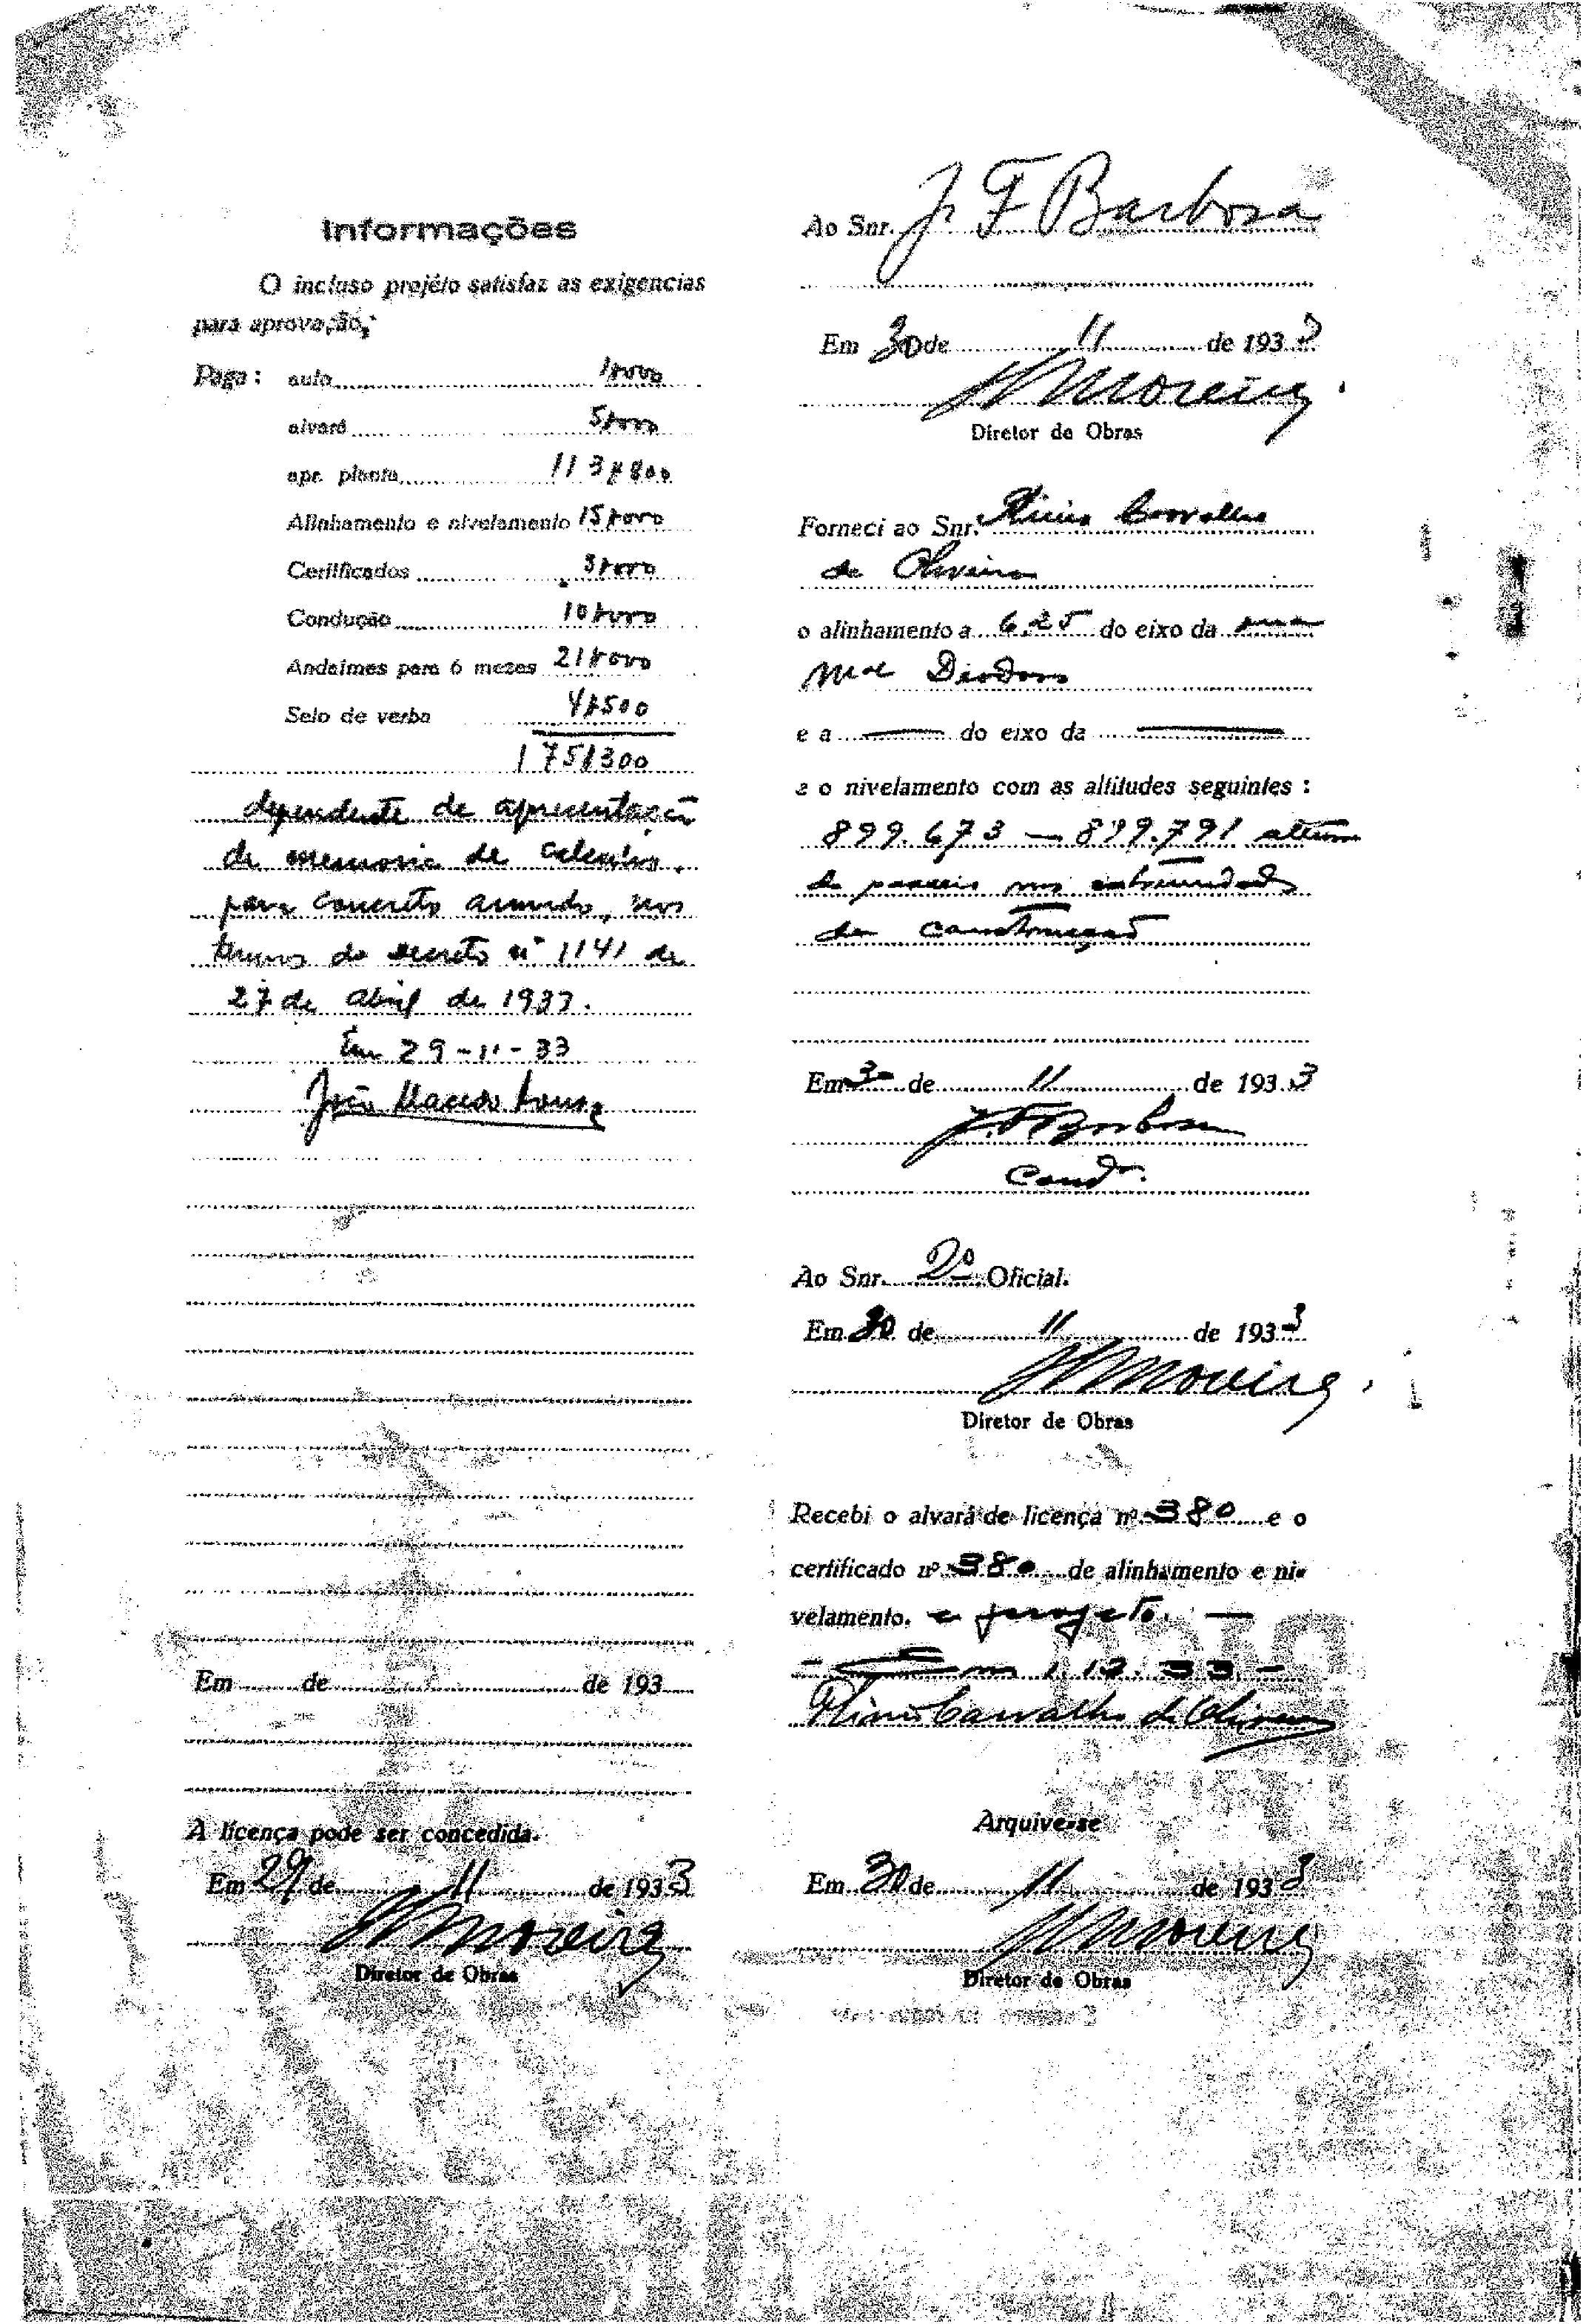 Informações
O incluso projéto satisfaz as exigencias
para aprovação,
Paga: auto 1$000
alvará 5$000
apr. planta 113$800
Alinhamento e nivelamento 15$000
Certificados 5$000
Condução 10$000
Andaimes para 6 mezes 21$000
Selo de verba 4$500
175$300
dependente de apresentação
de memoria de calculos,
para concreto armado, nos
termos do decreto nº 1141 de
27 de abril de 1933.
Em 29-11-33
João Macedo Souza
Em de de 193
A licença pode ser concedida.
Em 29 de 11 de 1933
Moreira
Diretor de Obras
Ao Snr. J. F Barbosa
Em 30 de 11 de 1933
Moreira
Diretor de Obras
Forneci ao Snr. Plinio Carvalho
de Oliveira
o alinhamento a 6,25 do eixo da rua
Mal Deodoro
e a — do eixo da —
e o nivelamento com as altitudes seguintes:
899.673 — 899.791 altura
de passeio nas extremidades
da construcção
Em 30 de 11 de 1933
J. F Barbosa
Condr.
Ao Snr. 2º Oficial.
Em 30 de 11 de 1933
Moreira
Diretor de Obras
Recebi o alvará de licença nº 380 e o
certificado nº 380 de alinhamento e ni-
velamento. e projeto. —
1.12.33 -
Plinio Carvalho de Oliveira
Arquive-se
Em 30 de 11 de 1933
Moreira
Diretor de Obras